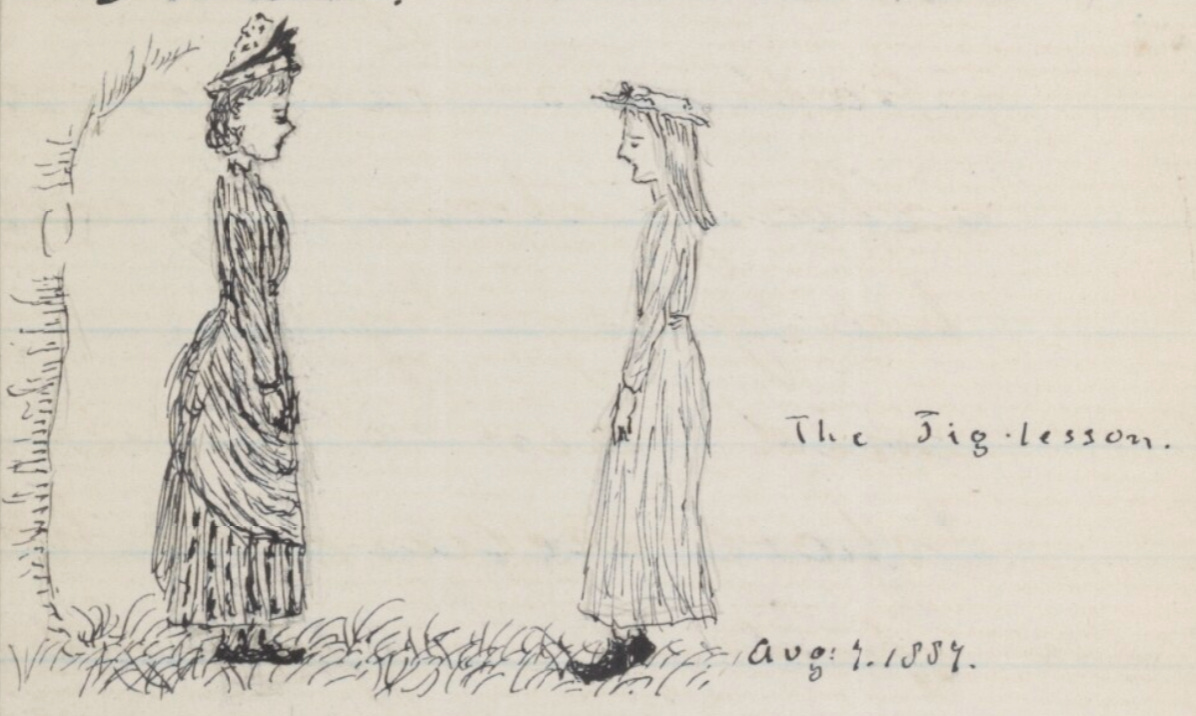 The Jig-lesson.
Aug: 7. 1887.